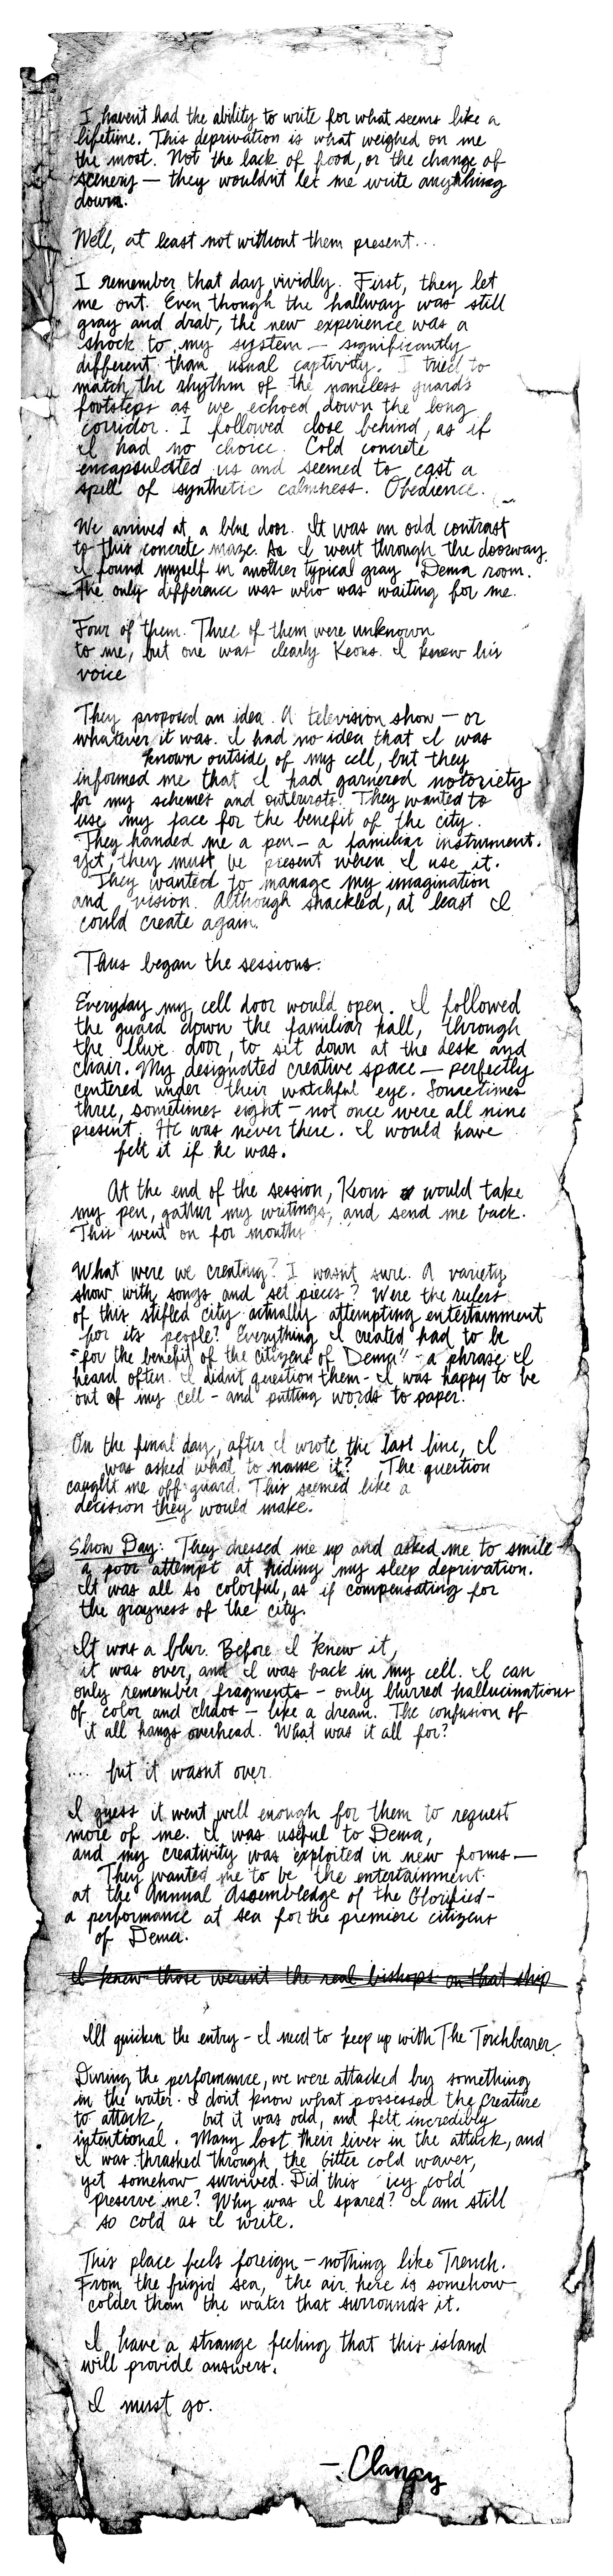 I haven't had the ability to write for what seems like a
lifetime. This deprivation is what weighed on me
the most. Not the lack of food, or the change of
scenery — they wouldn't let me write anything
down.
Well, at least not without them present...
I remember that day vividly. First, they let
me out. Even though the hallway was still
gray and drab, the new experience was a
shock to my system — significantly
different than usual captivity. I tried to
match the rhythm of the nameless guard's
footsteps as we echoed down the long
corridor. I followed close behind, as if
I had no choice. Cold concrete
encapsulated us and seemed to cast a
spell of synthetic calmness. Obedience.
We arrived at a blue door. It was an odd contrast
to this concrete maze. As I went through the doorway
I found myself in another typical gray Dema room.
The only difference was who was waiting for me.
Four of them. Three of them were unknown
to me, but one was clearly Keons. I knew his
voice
They proposed an idea. A television show — or
whatever it was. I had no idea that I was
known outside of my cell, but they
informed me that I had garnered notoriety
for my schemes and outbursts. They wanted to
use my face for the benefit of the city.
They handed me a pen — a familiar instrument.
Yet, they must be present when I use it.
They wanted to manage my imagination
and vision. Although shackled, at least I
could create again.
Thus began the sessions.
Everyday my cell door would open. I followed
the guard down the familiar hall, through
the blue door, to sit down at the desk and
chair. My designated creative space — perfectly
centered under their watchful eye. Sometimes
three, sometimes eight — not once were all nine
present. He was never there. I would have
felt it if he was.
At the end of the session, Keons would take
my pen, gather my writings, and send me back.
This went on for months
What were we creating? I wasn't sure. A variety
show with songs and set pieces? Were the rulers
of this stifled city actually attempting entertainment
for its people? Everything I created had to be
"for the benefit of the citizens of Dema" - a phrase I
heard often. I didn't question them - I was happy to be
out of my cell - and putting words to paper.
On the final day, after I wrote the last line, I
was asked what to name it? The question
caught me off guard. This seemed like a
decision they would make.
Show Day: They dressed me up and asked me to smile
a poor attempt at hiding my sleep deprivation.
It was all so colorful, as if compensating for
the grayness of the city.
It was a blur. Before I knew it,
it was over, and I was back in my cell. I can
only remember fragments - only blurred hallucinations
of color and chaos — like a dream. The confusion of
it all hangs overhead. What was it all for?
.... but it wasn't over.
I guess it went well enough for them to request
more of me. I was useful to Dema,
and my creativity was exploited in new forms —
They wanted me to be the entertainment
at the Annual Assemblage of the Glorified -
a performance at sea for the premiere citizens
of Dema.
I knew those weren't the real bishops on that ship
I'll quicken the entry - I need to keep up with The Torchbearer.
During the performance, we were attacked by something
in the water. I don't know what possessed the creature
to attack, but it was odd, and felt incredibly
intentional. Many lost their lives in the attack, and
I was thrashed through the bitter cold waves,
yet somehow survived. Did this icy cold
preserve me? Why was I spared? I am still
so cold as I write.
This place feels foreign — nothing like Trench.
From the frigid sea, the air here is somehow
colder than the water that surrounds it.
I have a strange feeling that this island
will provide answers.
I must go.
— Clancy